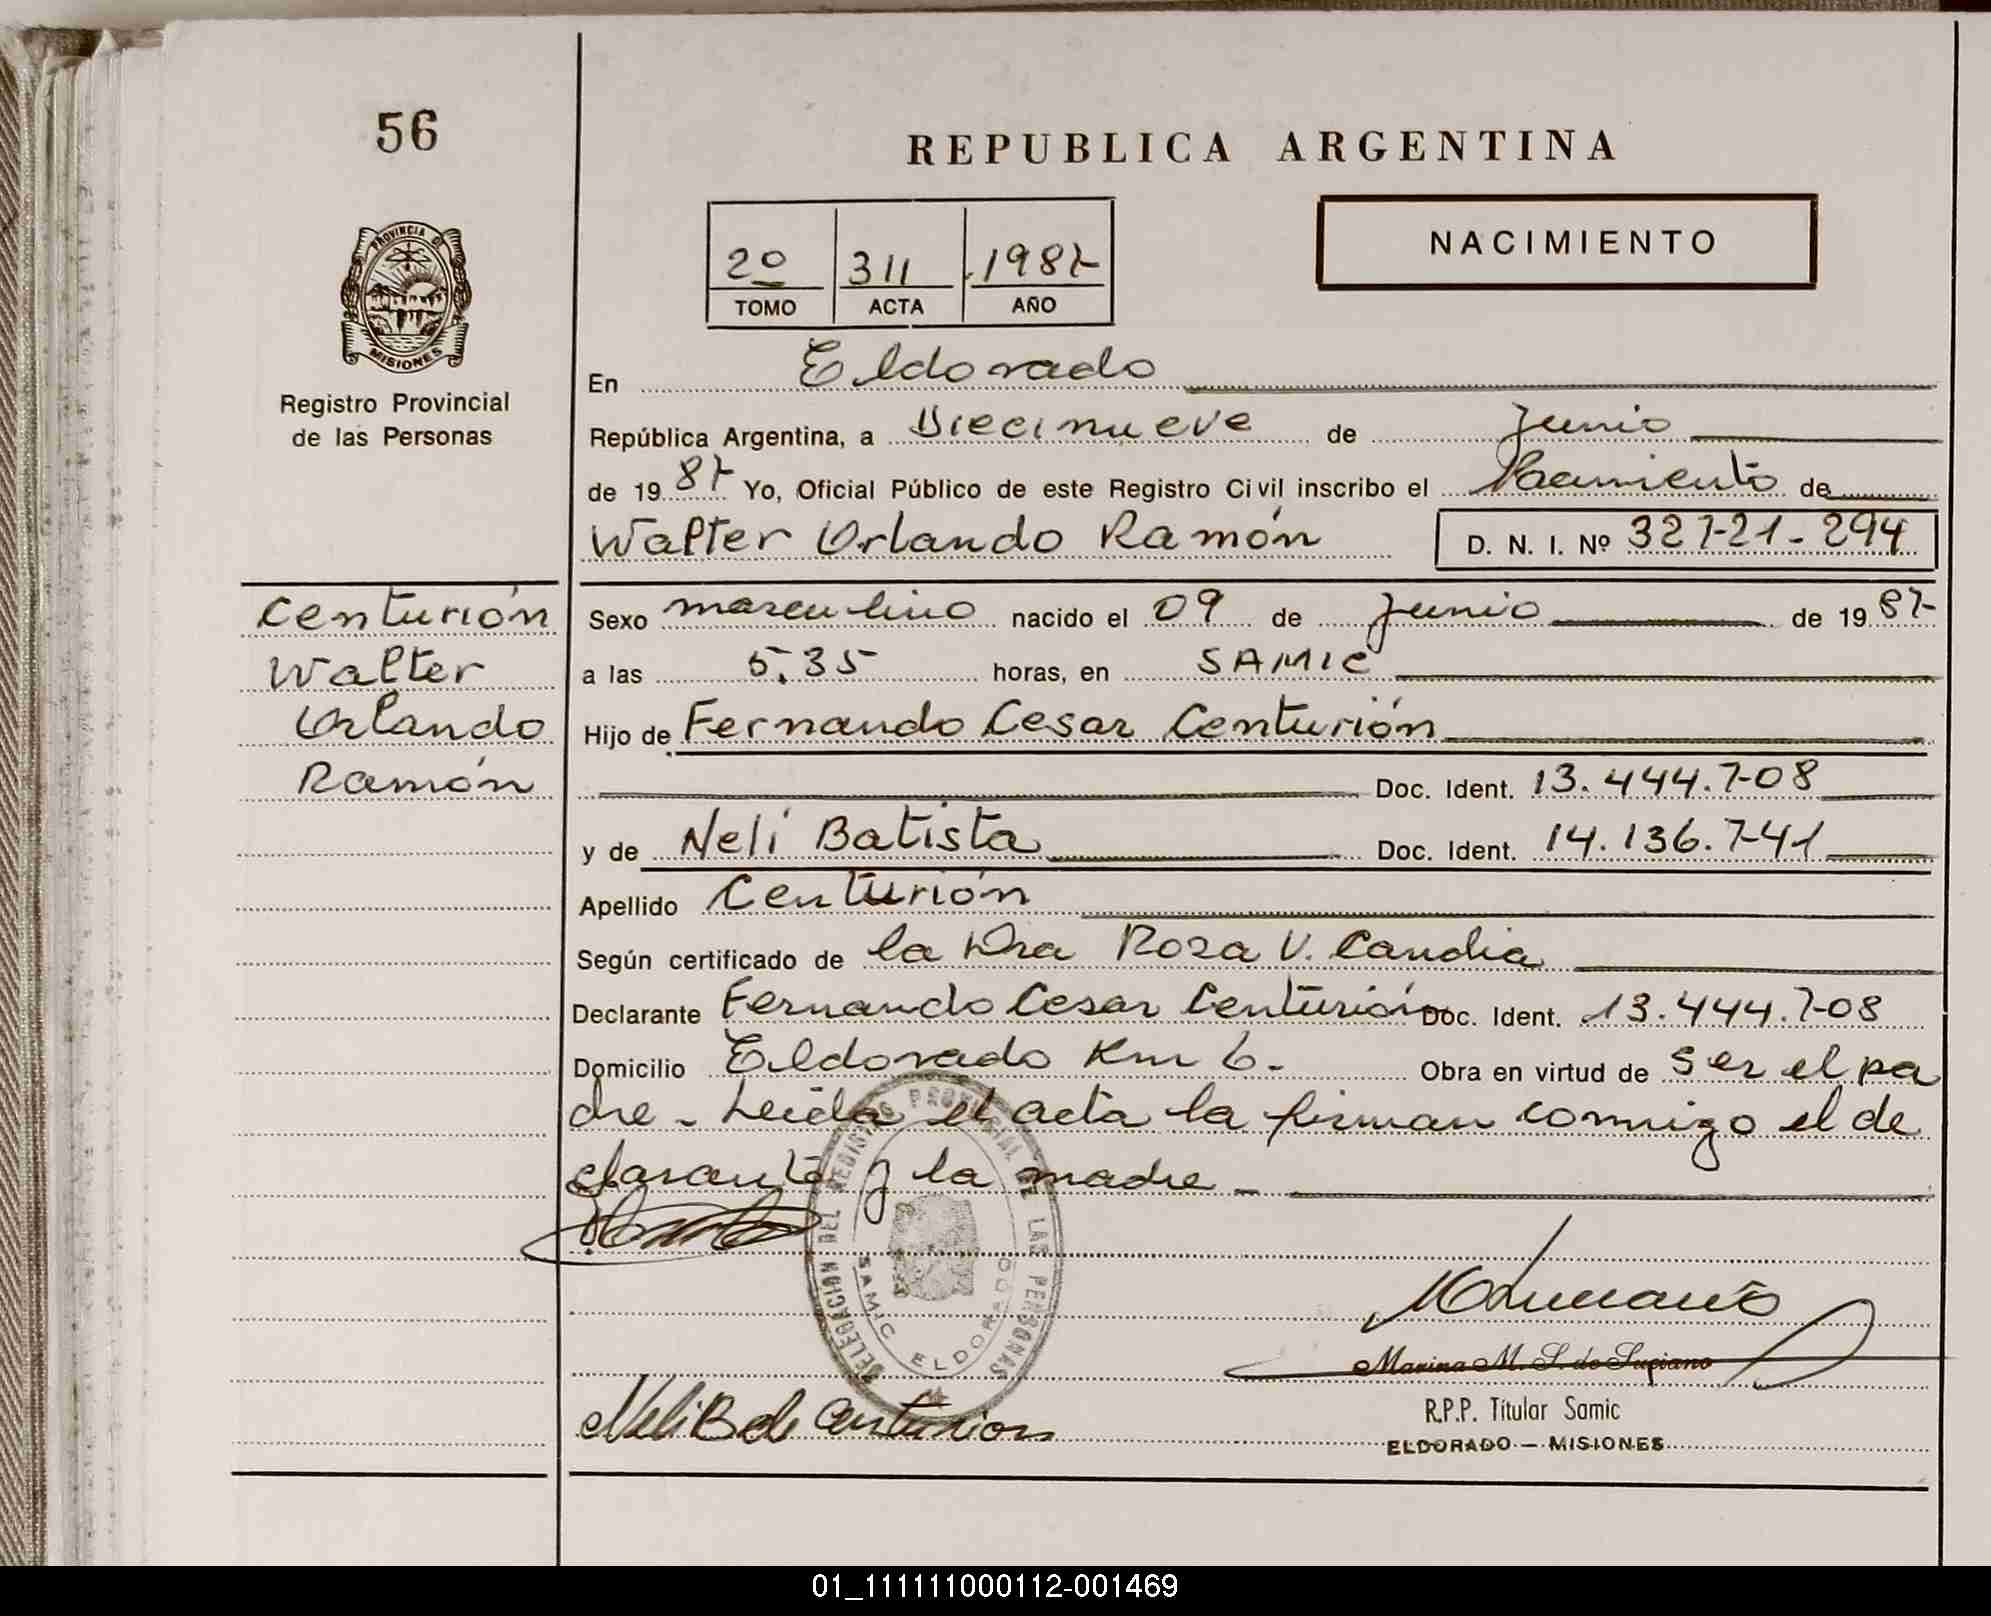 56
REPUBLICA ARGENTINA
PROVINCIA DE
MISIONES
Registro Provincial
de las Personas
NACIMIENTO
2º 311 1987
TOMO ACTA AÑO
En Eldorado
República Argentina, a Diecinueve de Junio
de 1987 Yo, Oficial Público de este Registro Civil inscribo el Nacimiento de
Walter Orlando Ramón D. N. I. Nº 32721-294
Centurión
Walter
Orlando
Ramón
Sexo masculino nacido el 09 de Junio de 1987
a las 5.35 horas, en SAMIC
Hijo de Fernando Cesar Centurión
Doc. Ident. 13.444.708
y de Neli Batista Doc. Ident. 14.136.741
Apellido Centurión
Según certificado de la Dra Rosa V. Candia
Declarante Fernando Cesar Centurión Doc. Ident. 13.444.708
Domicilio Eldorado Km 6. Obra en virtud de ser el pa
dre - Leída el acta la firman conmigo el de
clarante y la madre -
DELEGACION DEL REGISTRO PROVINCIAL DE LAS PERSONAS
SAMIC ELDORADO
Marina M. S. de Luciano
R.P.P. Titular Samic
ELDORADO - MISIONES
Neli B de Centurion
01_111111000112-001469